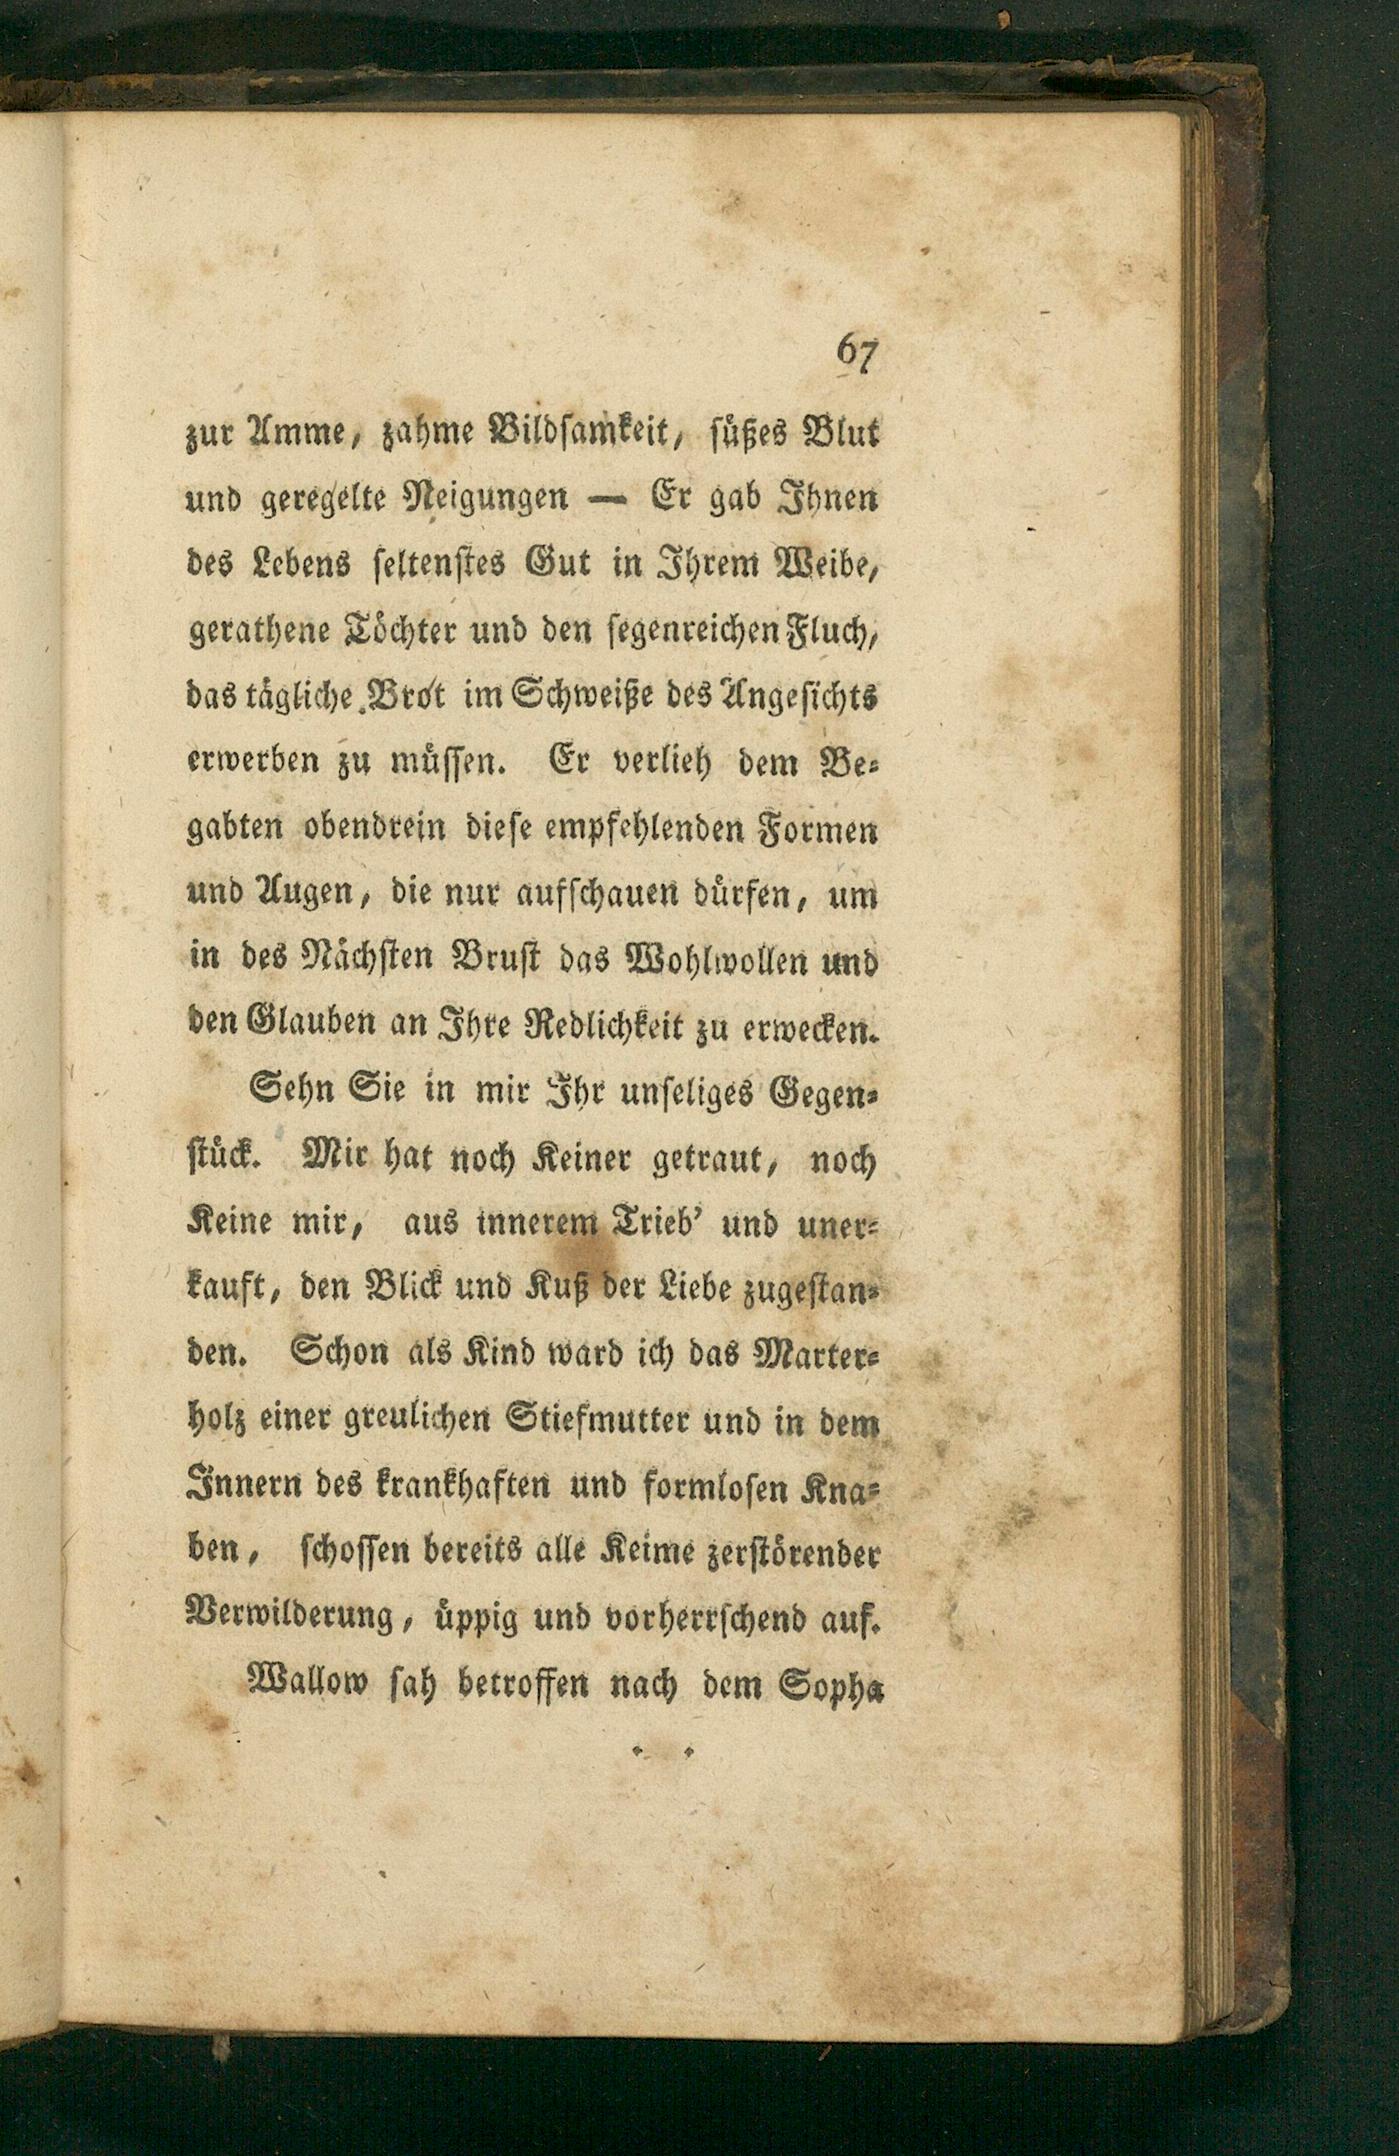 67
zur Amme, zahme Bildsamkeit, süßes Blut
und geregelte Neigungen — Er gab Ihnen
des Lebens seltenstes Gut in Ihrem Weibe,
gerathene Töchter und den segenreichen Fluch,
das tägliche Brot im Schweiße des Angesichts
erwerben zu müssen. Er verlieh dem Be-
gabten obendrein diese empfehlenden Formen
und Augen, die nur aufschauen dürfen, um
in des Nächsten Brust das Wohlwollen und
den Glauben an Ihre Redlichkeit zu erwecken.
Sehn Sie in mir Ihr unseliges Gegen-
stück. Mir hat noch Keiner getraut, noch
Keine mir, aus innerem Trieb' und uner-
kauft, den Blick und Kuß der Liebe zugestan-
den. Schon als Kind ward ich das Marter-
holz einer greulichen Stiefmutter und in dem
Innern des krankhaften und formlosen Kna-
ben, schossen bereits alle Keime zerstörender
Verwilderung, üppig und vorherrschend auf.
Wallow sah betroffen nach dem Sopha
* *